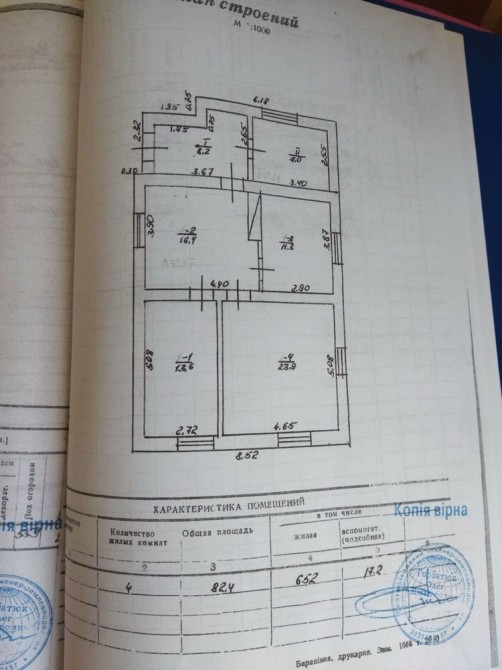 план строений
М 1:1000
6.18
1.95
0.75
1.45
0.75
2.32
2.65
I
8.2
II
9.0
2.55
0.30
3.67
3.40
3.90
-2
16.9
11.2
3.87
4.40
2.90
5.08
-1
13.6
-4
23.9
5.08
2.72
4.65
8.52
ХАРАКТЕРИСТИКА ПОМЕЩЕНИЙ
Количество жилых комнат
Общая площадь
в том числе
жилая
вспомогат. (подсобная)
Копія вірна
2
3
4
5
6
4
82.4
65.2
17.2
Под огородом
Копія вірна
Баранівка, друкарня. Зам.